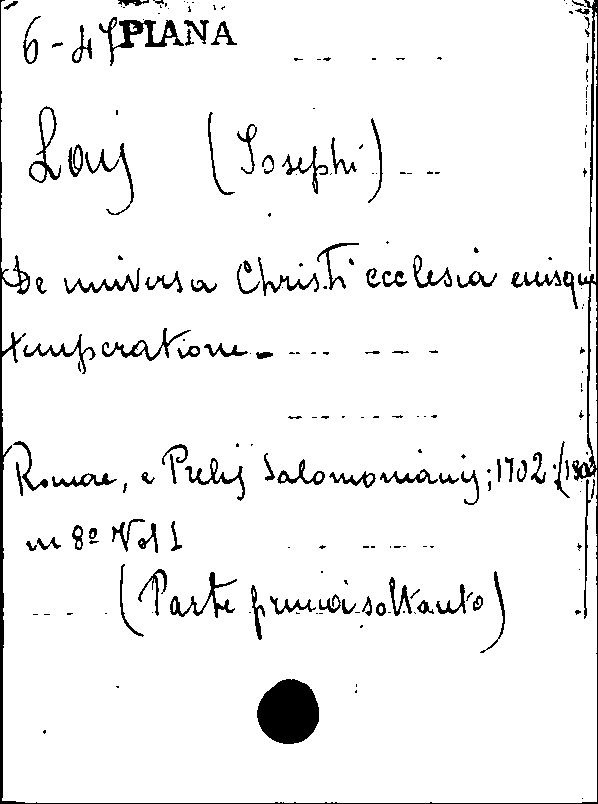 6-47 PIANA
Loij (Josephi)
De universa Christi ecclesia eiusque
temperatione.
Romae, e Prelis Salomonianis; 1702.
in 8º Vol 1
(Parte prima soltanto)